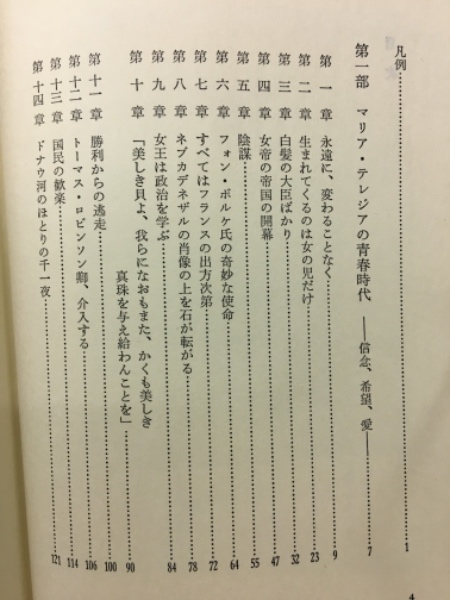 凡例……1
第一部　マリア・テレジアの青春時代　――信念、希望、愛――……7
第一章　永遠に、変わることなく……9
第二章　生まれてくるのは女の児だけ……23
第三章　白髪の大臣ばかり……32
第四章　女帝の帝国の開幕……47
第五章　陰謀……55
第六章　フォン・ボルケ氏の奇妙な使命……64
第七章　すべてはフランスの出方次第……72
第八章　ネブカデネザルの肖像の上を石が転がる……78
第九章　女王は政治を学ぶ……84
第十章　「美しき貝よ、我らになおもまた、かくも美しき
真珠を与え給わんことを」……90
第十一章　勝利からの逃走……100
第十二章　トーマス・ロビンソン卿、介入する……106
第十三章　国民の歓楽……114
第十四章　ドナウ河のほとりの千一夜……121
4